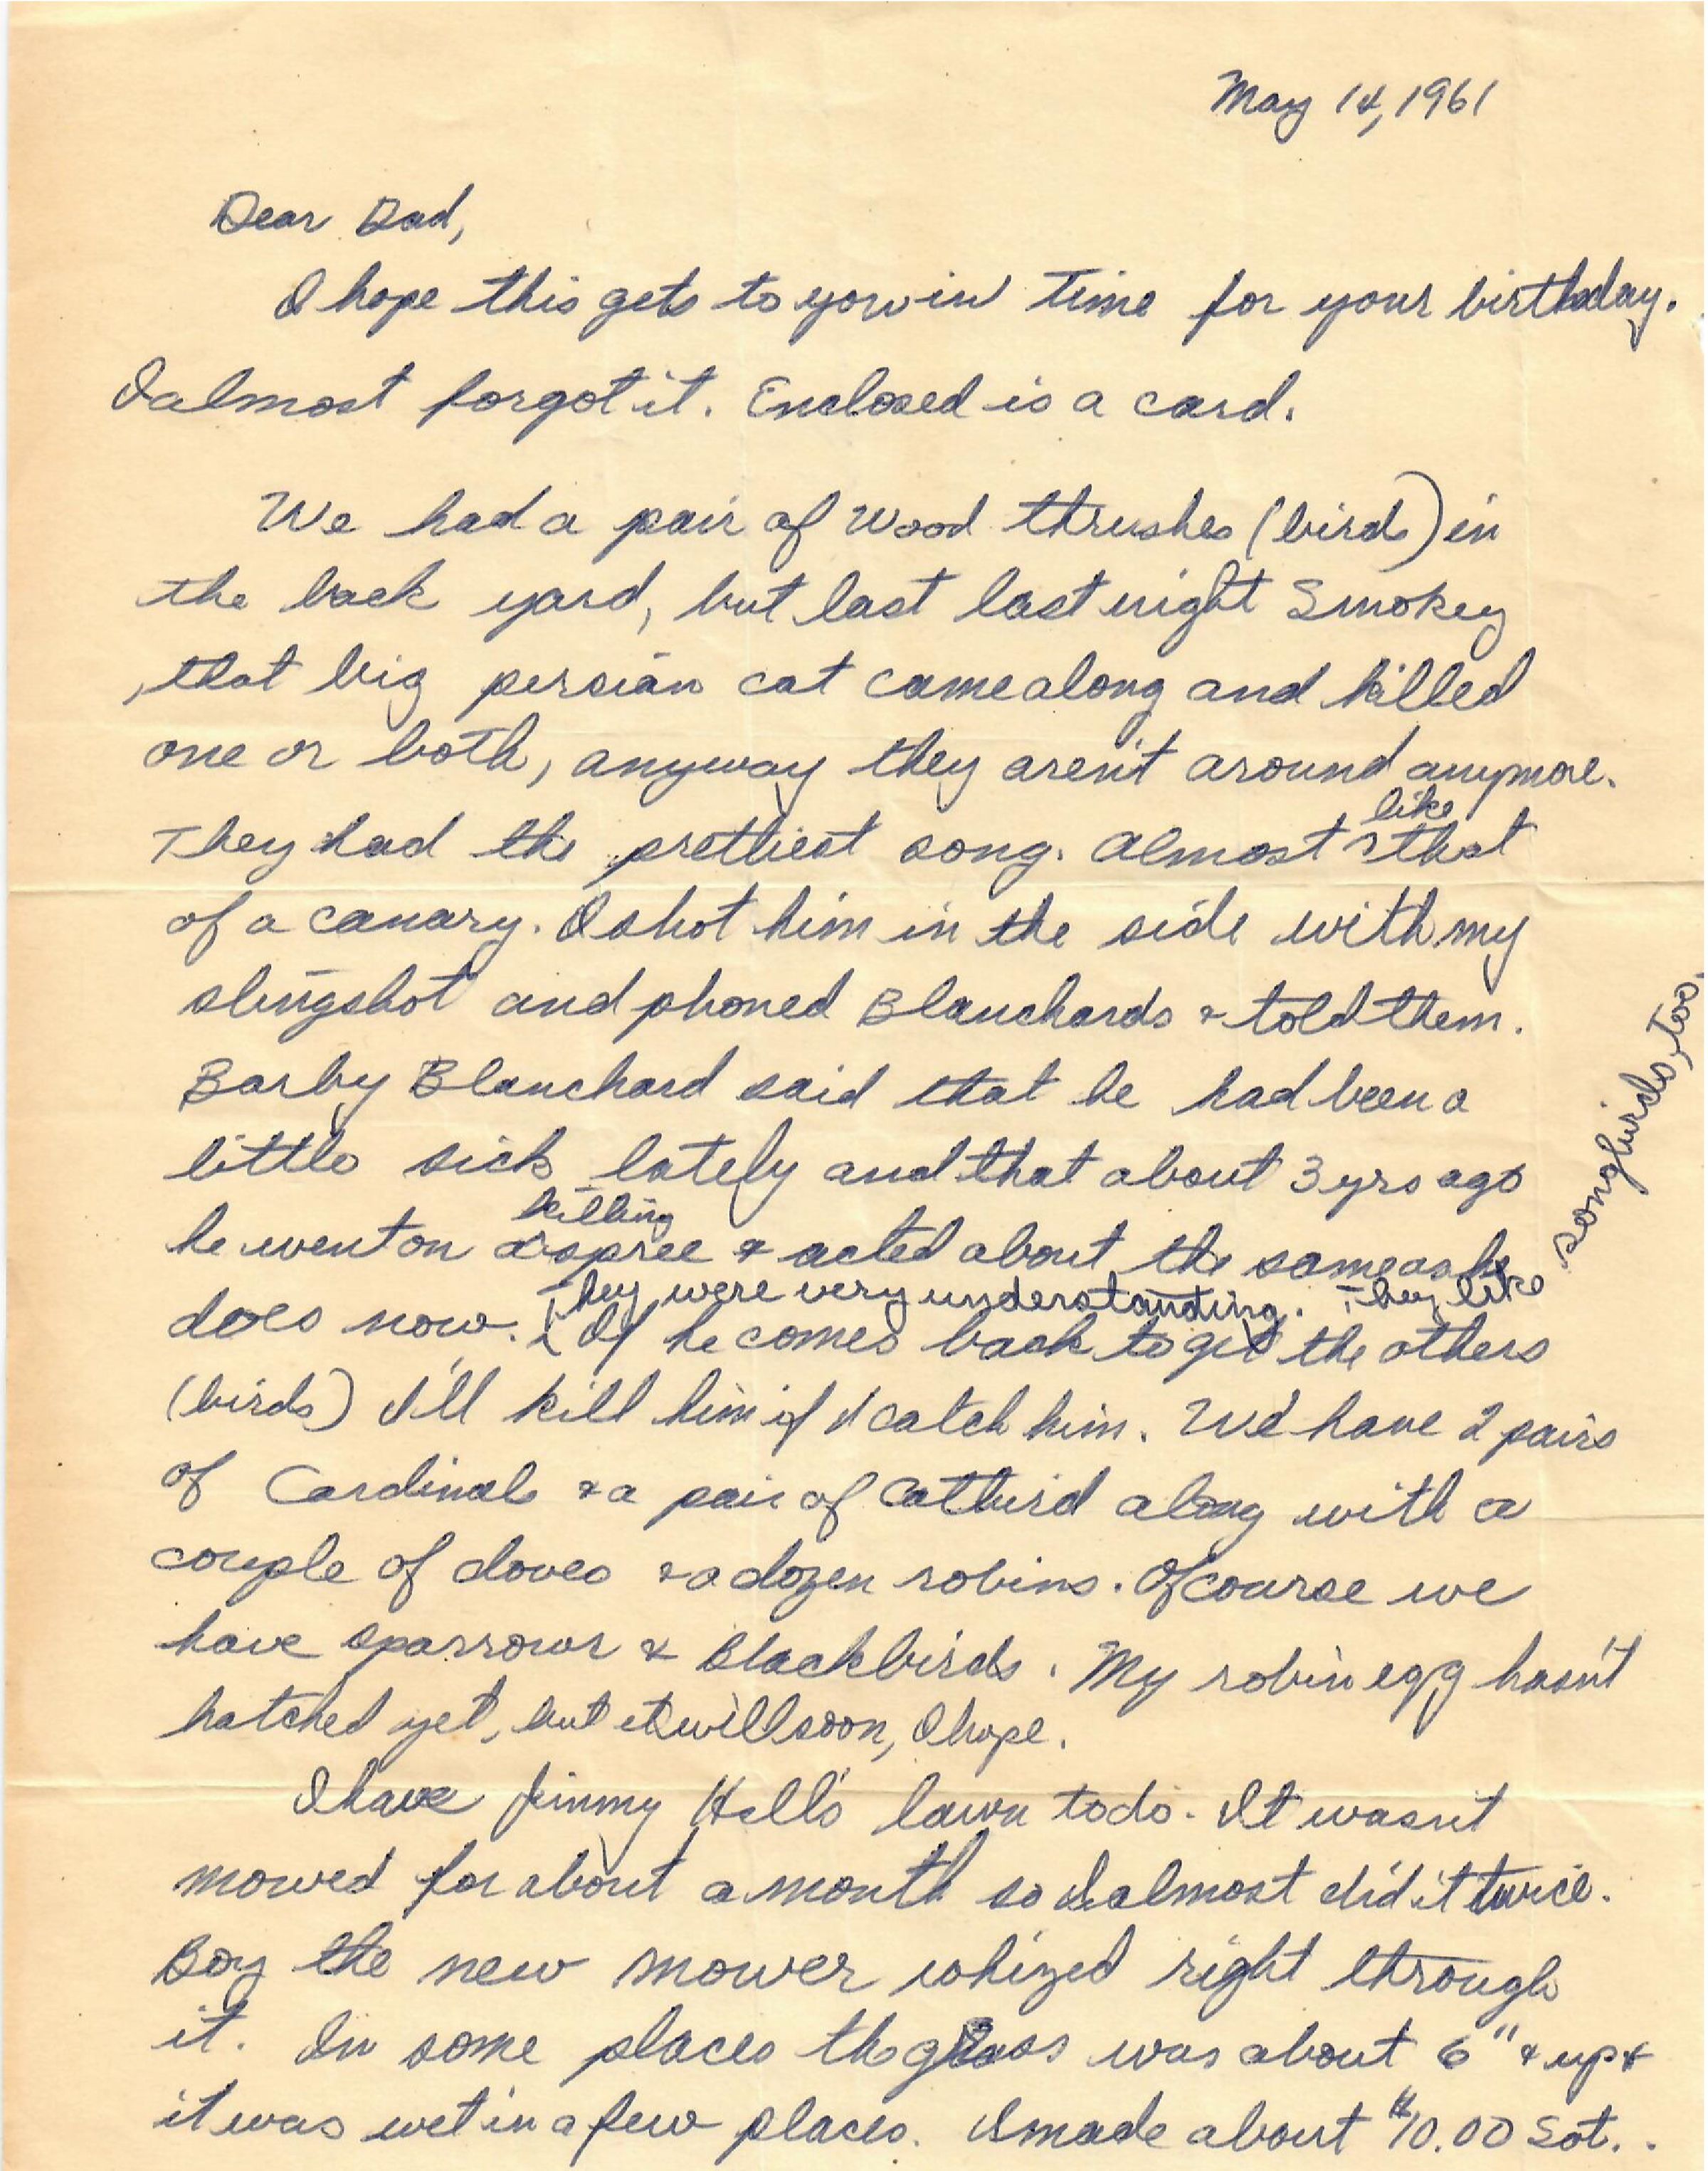 May 14, 1961
Dear Dad,
I hope this gets to you in time for your birthday.
I almost forgot it. Enclosed is a card.
We had a pair of wood thrushes (birds) in
the back yard, but last last night Smokey
, that big persian cat came along and killed
one or both, anyway they aren't around anymore.
like
They had the prettiest song. Almost ^ that
of a canary. I shot him in the side with my
slingshot and phoned Blanchards & told them.
Barby Blanchard said that he had been a
little sick lately and that about 3 yrs ago
killing
he went on a spree & acted about the same as he
They were very understanding. They like songbirds, too.
does now. If he comes back to get the others
(birds) I'll kill him if I catch him. We have 2 pairs
of Cardinals & a pair of Catbird along with a
couple of doves & a dozen robins. Of course we
have sparrows & Blackbirds. My robin egg hasn't
hatched yet, but it will soon, I hope.
I have Jimmy Hall's lawn to do. It wasn't
mowed for about a month so I almost did it twice.
Boy the new mower whized right through
it. In some places the grass was about 6" & up &
it was wet in a few places. I made about $10.00 Sat..